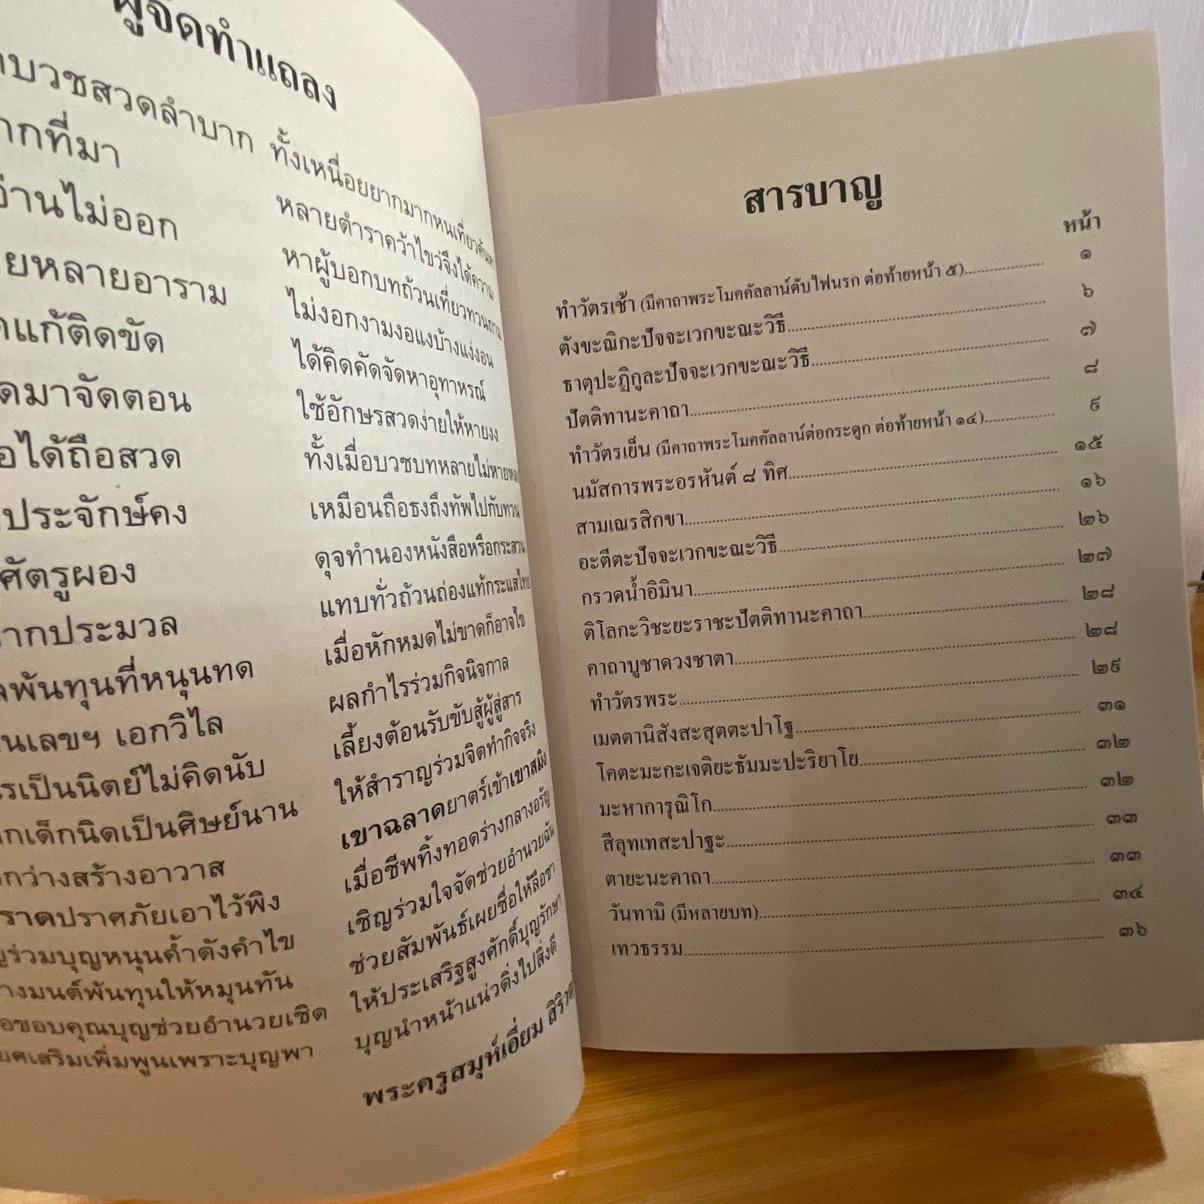 ผู้จัดทำแถลง
บวชสวดลำบาก ทั้งเหนื่อยยากมากหนเที่ยวค้นหา
ที่มา หลายตำราคว้าไขว่จึงได้ความ
อ่านไม่ออก หาผู้บอกบทถ้วนเที่ยวทวนถาม
หลายอาราม ไม่งอกงามงอแงบ้างแง่งอน
แก้ติดขัด ได้คิดคัดจัดหาอุทาหรณ์
มาจัดตอน ใช้อักษรสวดง่ายให้หายงง
ได้ถือสวด ทั้งเมื่อบวชบทหลายไม่หาย
ประจักษ์คง เหมือนถือธงถึงทัพไปกับทวน
ศัตรูผอง ดุจทำนองหนังสือหรือกระสวน
ประมวล แทบทั่วถ้วนถ่องแท้กระแสไทย
พันทุนที่หนุนทด เมื่อหักหมดไม่ขาดก็อาจไข
เลขฯ เอกวิไล ผลกำไรร่วมกิจนิจกาล
เป็นนิตย์ไม่คิดนับ เลี้ยงต้อนรับขับสู้ผู้สู่สาร
เด็กนิดเป็นศิษย์นาน ให้สำราญร่วมจิตทำกิจจริง
กว่างสร้างอาวาส เขาฉลาดยาตร์เข้าเขาสมิง
ราดปราศภัยเอาไว้พิง เมื่อชีพทิ้งทอดร่างกลางอรัญ
ร่วมบุญหนุนค้ำดังคำไข เชิญร่วมใจจัดช่วยอำนวยฉัน
มนต์พันทุนให้หมุนทัน ช่วยสัมพันธ์เผยชื่อให้ลือชา
ขอบคุณบุญช่วยอำนวยเชิด ให้ประเสริฐสูงศักดิ์บุญรักษา
เสริมเพิ่มพูนเพราะบุญพา บุญนำหน้าแน่วดิ่งไปสิ่งดี
พระครูสมุห์เอี่ยม
สารบาญ
หน้า
ทำวัตรเช้า (มีคาถาพระโมคคัลลาน์ดับไฟนรก ต่อท้ายหน้า ๕)........ ๑
ตังขะณิกะปัจจะเวกขะณะวิธี........ ๖
ธาตุปะฏิกูละปัจจะเวกขะณะวิธี........ ๗
ปัตติทานะคาถา........ ๘
ทำวัตรเย็น (มีคาถาพระโมคคัลลาน์ต่อกระดูก ต่อท้ายหน้า ๑๔)........ ๙
นมัสการพระอรหันต์ ๘ ทิศ........ ๑๕
สามเณรสิกขา........ ๑๖
อะตีตะปัจจะเวกขะณะวิธี........ ๒๖
กรวดน้ำอิมินา........ ๒๗
ติโลกะวิชะยะราชะปัตติทานะคาถา........ ๒๘
คาถาบูชาดวงชาตา........ ๒๘
ทำวัตรพระ........ ๒๙
เมตตานิสังสะสุตตะปาโฐ........ ๓๑
โคตะมะกะเจติยะธัมมะปะริยาโย........ ๓๒
มะหาการุณิโก........ ๓๒
สีลุทเทสะปาฐะ........ ๓๓
ตายะนะคาถา........ ๓๓
วันทามิ (มีหลายบท)........ ๓๔
เทวธรรม........ ๓๖